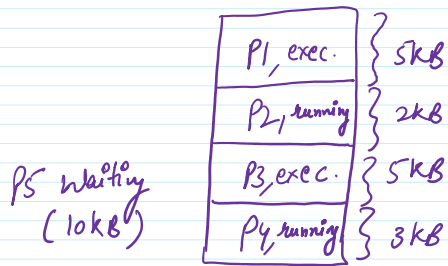 P1, exec. 5KB
P2, running 2KB
P3, exec. 5KB
P4, running 3KB
P5 waiting
(10KB)